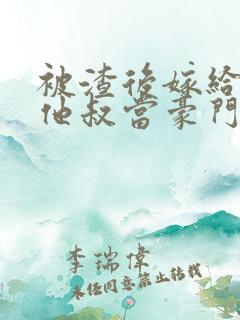 被渣後嫁給
他叔當豪門
李瑞偉
未任同意禁止轉載